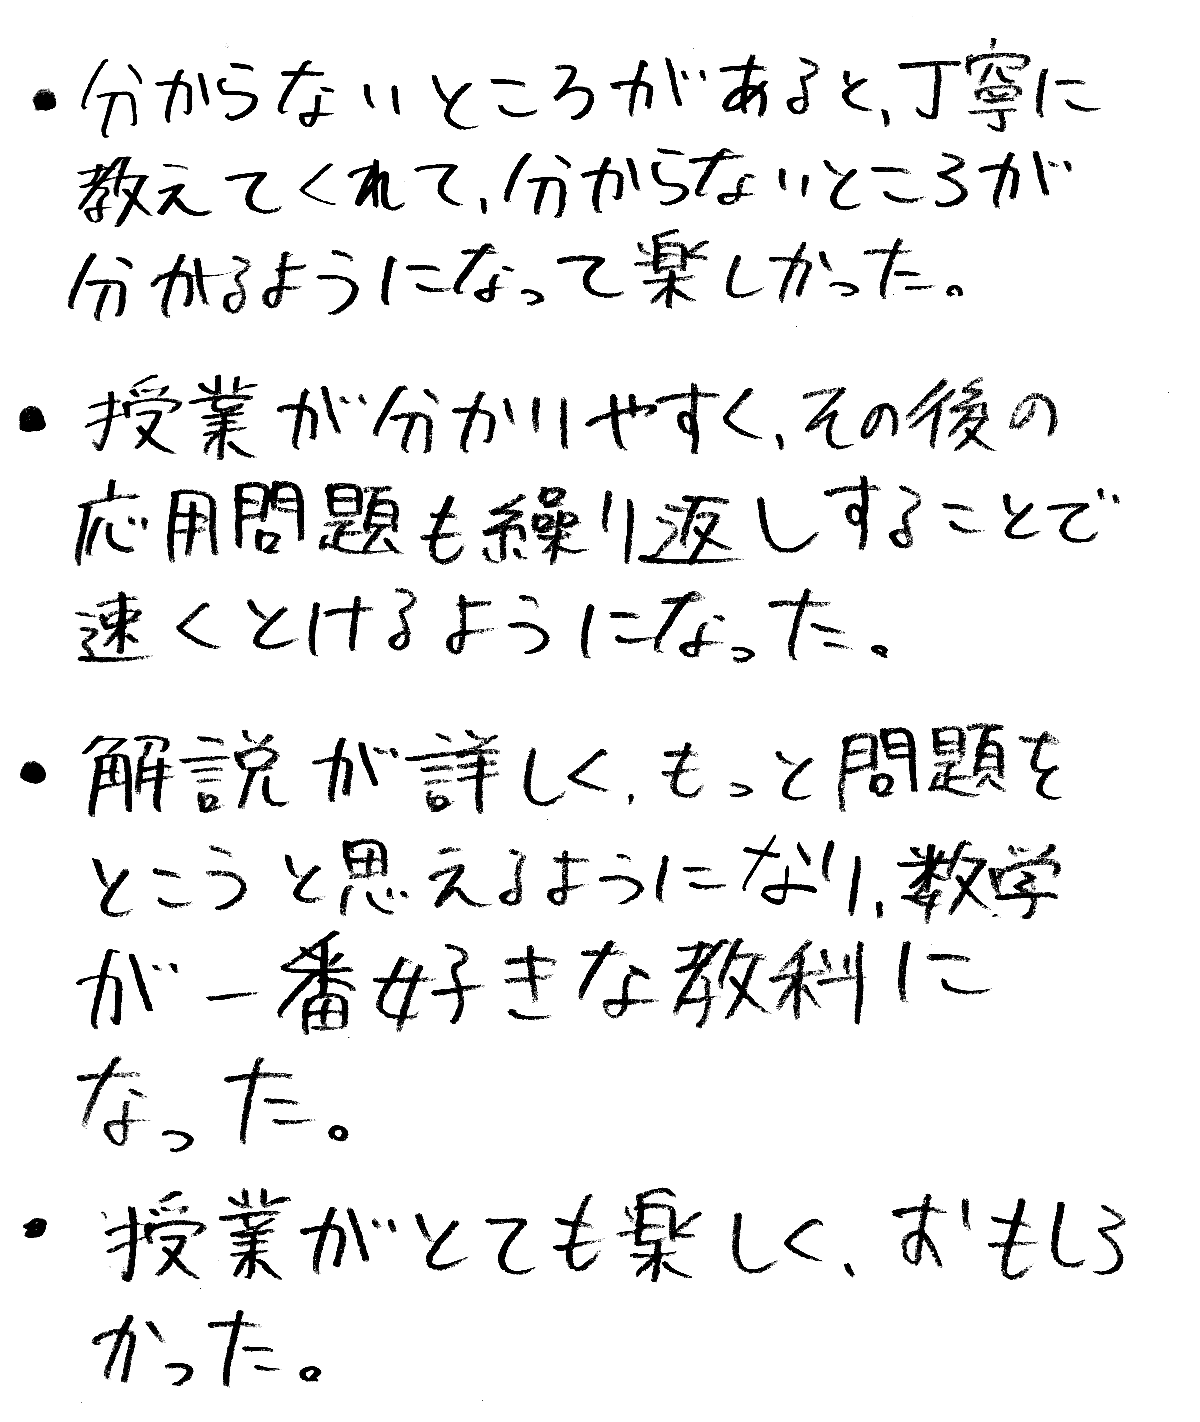 ・分からないところがあると、丁寧に
教えてくれて、分からないところが
分かるようになって楽しかった。
・授業が分かりやすく、その後の
応用問題も繰り返しすることで
速くとけるようになった。
・解説が詳しく、もっと問題を
とこうと思えるようになり、数学
が一番好きな教科に
なった。
・授業がとても楽しく、おもしろ
かった。